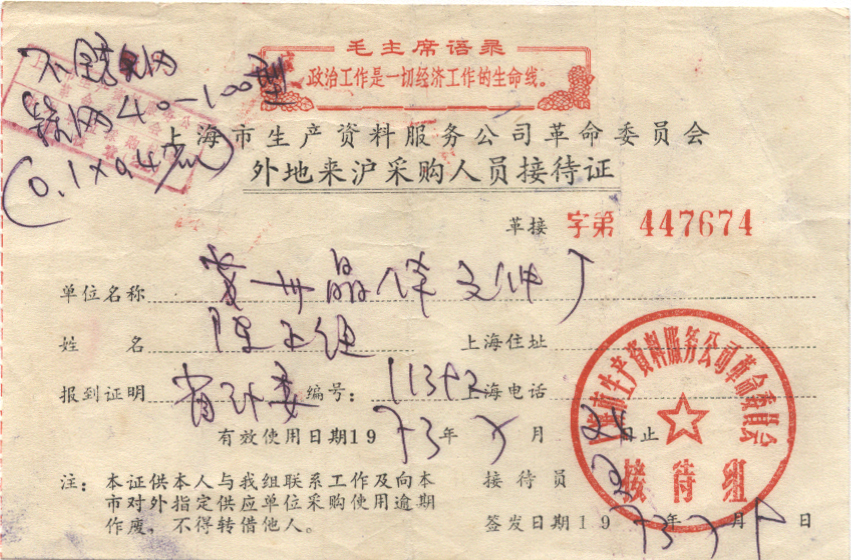 毛主席语录
政治工作是一切经济工作的生命线。
不锈钢网
40-100型
(0.1×0.4
上海市生产资料服务公司革命委员会
外地来沪采购人员接待证
革接 字第 447674
单位名称 常州晶体文件厂
姓 名 陈
上海住址
报到证明 省计委 编号: 11392 上海电话
有效使用日期1973年 月 日止
注: 本证供本人与我组联系工作及向本
市对外指定供应单位采购使用逾期
作废, 不得转借他人。
接待员
签发日期1973年 月 日
上海市生产资料服务公司革命委员会
接待组